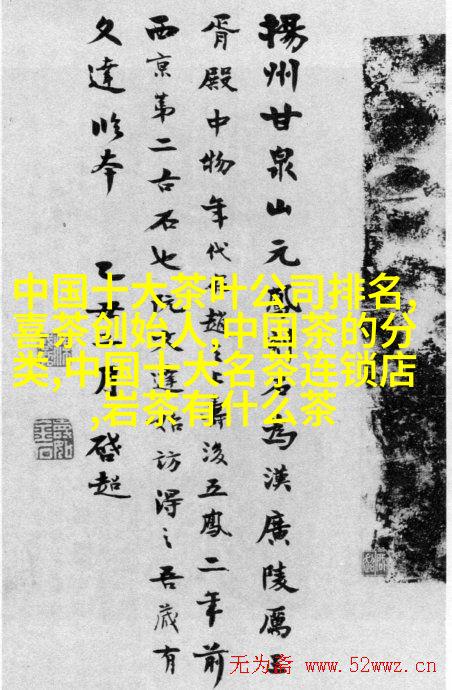 揚州甘泉山元鳳石為漢廣陵厲王
胥殿中物年代趙後五鳳二年前
西京第二古石也阮文達訪得之吾藏有
文達時本 月 啓超
中国十大茶叶公司排名,
喜茶创始人,中国茶的分
类,中国十大名茶连锁店
,岩茶有什么茶
无为斋 www.52wwz.cn